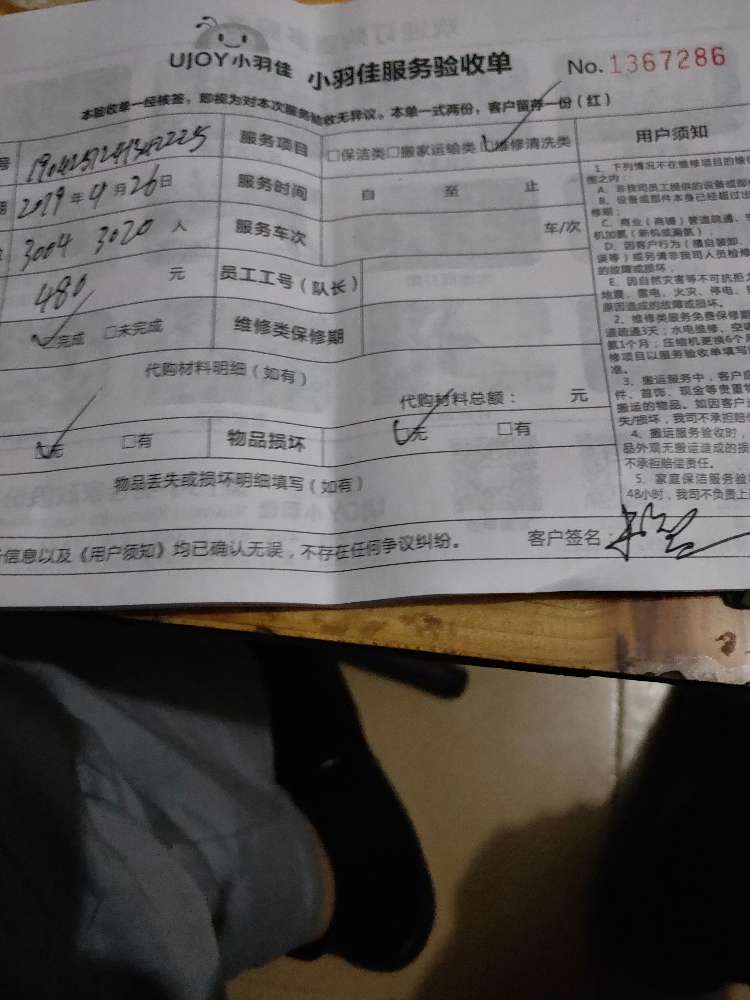 UJOY小羽佳 小羽佳服务验收单 No.1367286
本验收单一经核签，即视为对本次服务验收无异议。本单一式两份，客户留存一份（红）
号 服务项目 □保洁类□搬家运输类 □维修清洗类
2019年4月26日 服务时间 自 至 止
3004 3020 人 服务车次 车/次
480 元 员工工号（队长）
完成 □未完成 维修类保修期
代购材料明细（如有） 代购材料总额： 元
□无 □有 物品损坏 □无 □有
物品丢失或损坏明细填写（如有）
信息以及《用户须知》均已确认无误，不存在任何争议纠纷。 客户签名：
用户须知
1、下列情况不在维修项目的维
围之内：
A、非我司员工提供的设备或部
B、设备或部件本身已经超过出
修期；
C、商业（商铺）管道疏通、
机加氟（新机或漏氟）；
D、因客户行为（擅自装卸、
误等）或另请非我司人员检修
的故障或损坏；
E、因自然灾害等不可抗拒力
地震、雷电、火灾、停电、
原因造成的故障或损坏。
2、维修类服务免费保修期
道疏通3天；水电维修、空
氟1个月；压缩机更换6个月
修项目以服务验收单填写
准。
3、搬运服务中，客户应
件、首饰、现金等贵重物
搬运的物品。如因客户
失/损坏，我司不承担赔
4、搬运服务验收时，
品外观无搬运造成的损
不承担赔偿责任。
5、家庭保洁服务验
48小时，我司不负责上